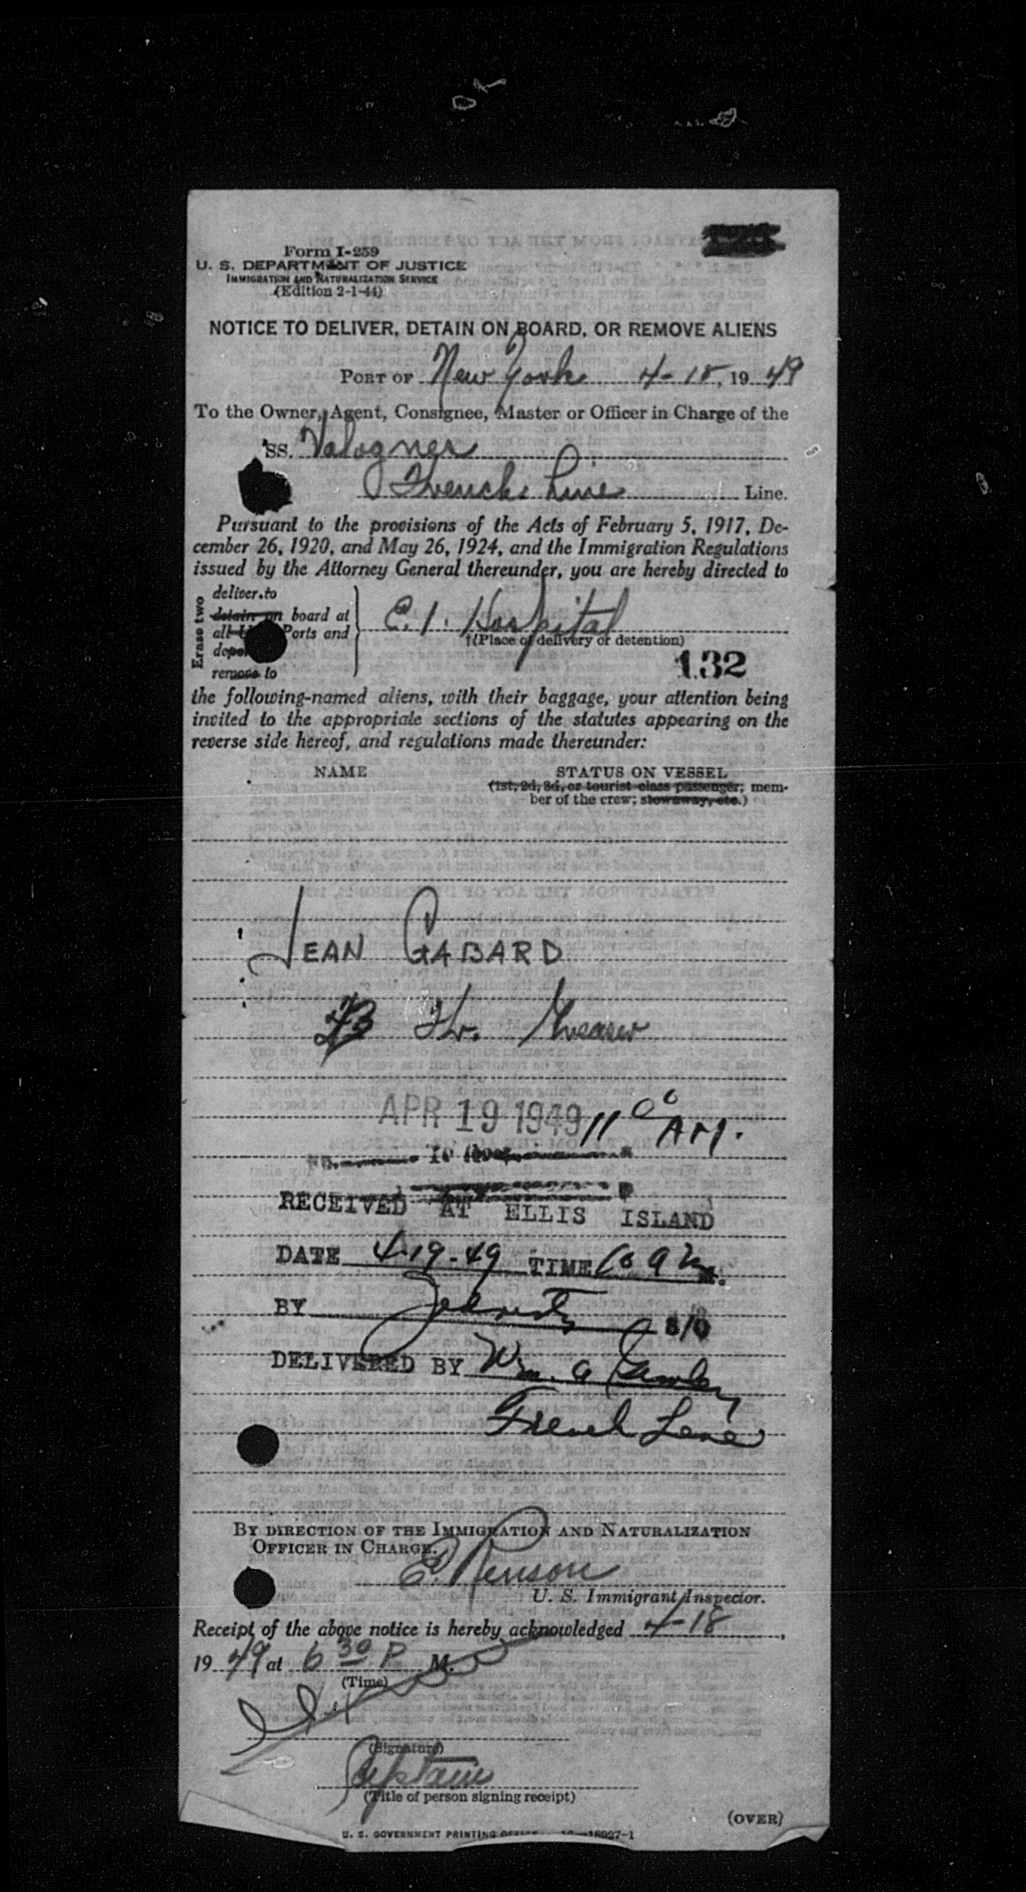 Form I-259
U. S. DEPARTMENT OF JUSTICE
IMMIGRATION AND NATURALIZATION SERVICE
(Edition 2-1-44)
NOTICE TO DELIVER, DETAIN ON BOARD, OR REMOVE ALIENS
PORT OF New York 4-18, 19 49
To the Owner, Agent, Consignee, Master or Officer in Charge of the
SS. Valognes
French Line Line.
Pursuant to the provisions of the Acts of February 5, 1917, De-
cember 26, 1920, and May 26, 1924, and the Immigration Regulations
issued by the Attorney General thereunder, you are hereby directed to
Erase two
deliver to
detain on board at
all Ports and
remove to
E. I. Hospital
(Place of delivery or detention)
132
the following-named aliens, with their baggage, your attention being
invited to the appropriate sections of the statutes appearing on the
reverse side hereof, and regulations made thereunder:
NAME STATUS ON VESSEL
(1st, 2d, 3d, or tourist class passenger; mem-
ber of the crew; stowaway, etc.)
JEAN GABARD
23 Fr.
APR 19 1949 11 00 AM.
RECEIVED AT ELLIS ISLAND
DATE 4-19-49 TIME 10 a m.
BY S/O
DELIVERED BY Wm. A
French Line
BY DIRECTION OF THE IMMIGRATION AND NATURALIZATION
OFFICER IN CHARGE.
E. Renson
U. S. Immigrant Inspector.
Receipt of the above notice is hereby acknowledged 4-18,
19 49 at 6 30 P M.
(Time)
(Signature)
Captain
(Title of person signing receipt)
(OVER)
U. S. GOVERNMENT PRINTING OFFICE 16-18027-1